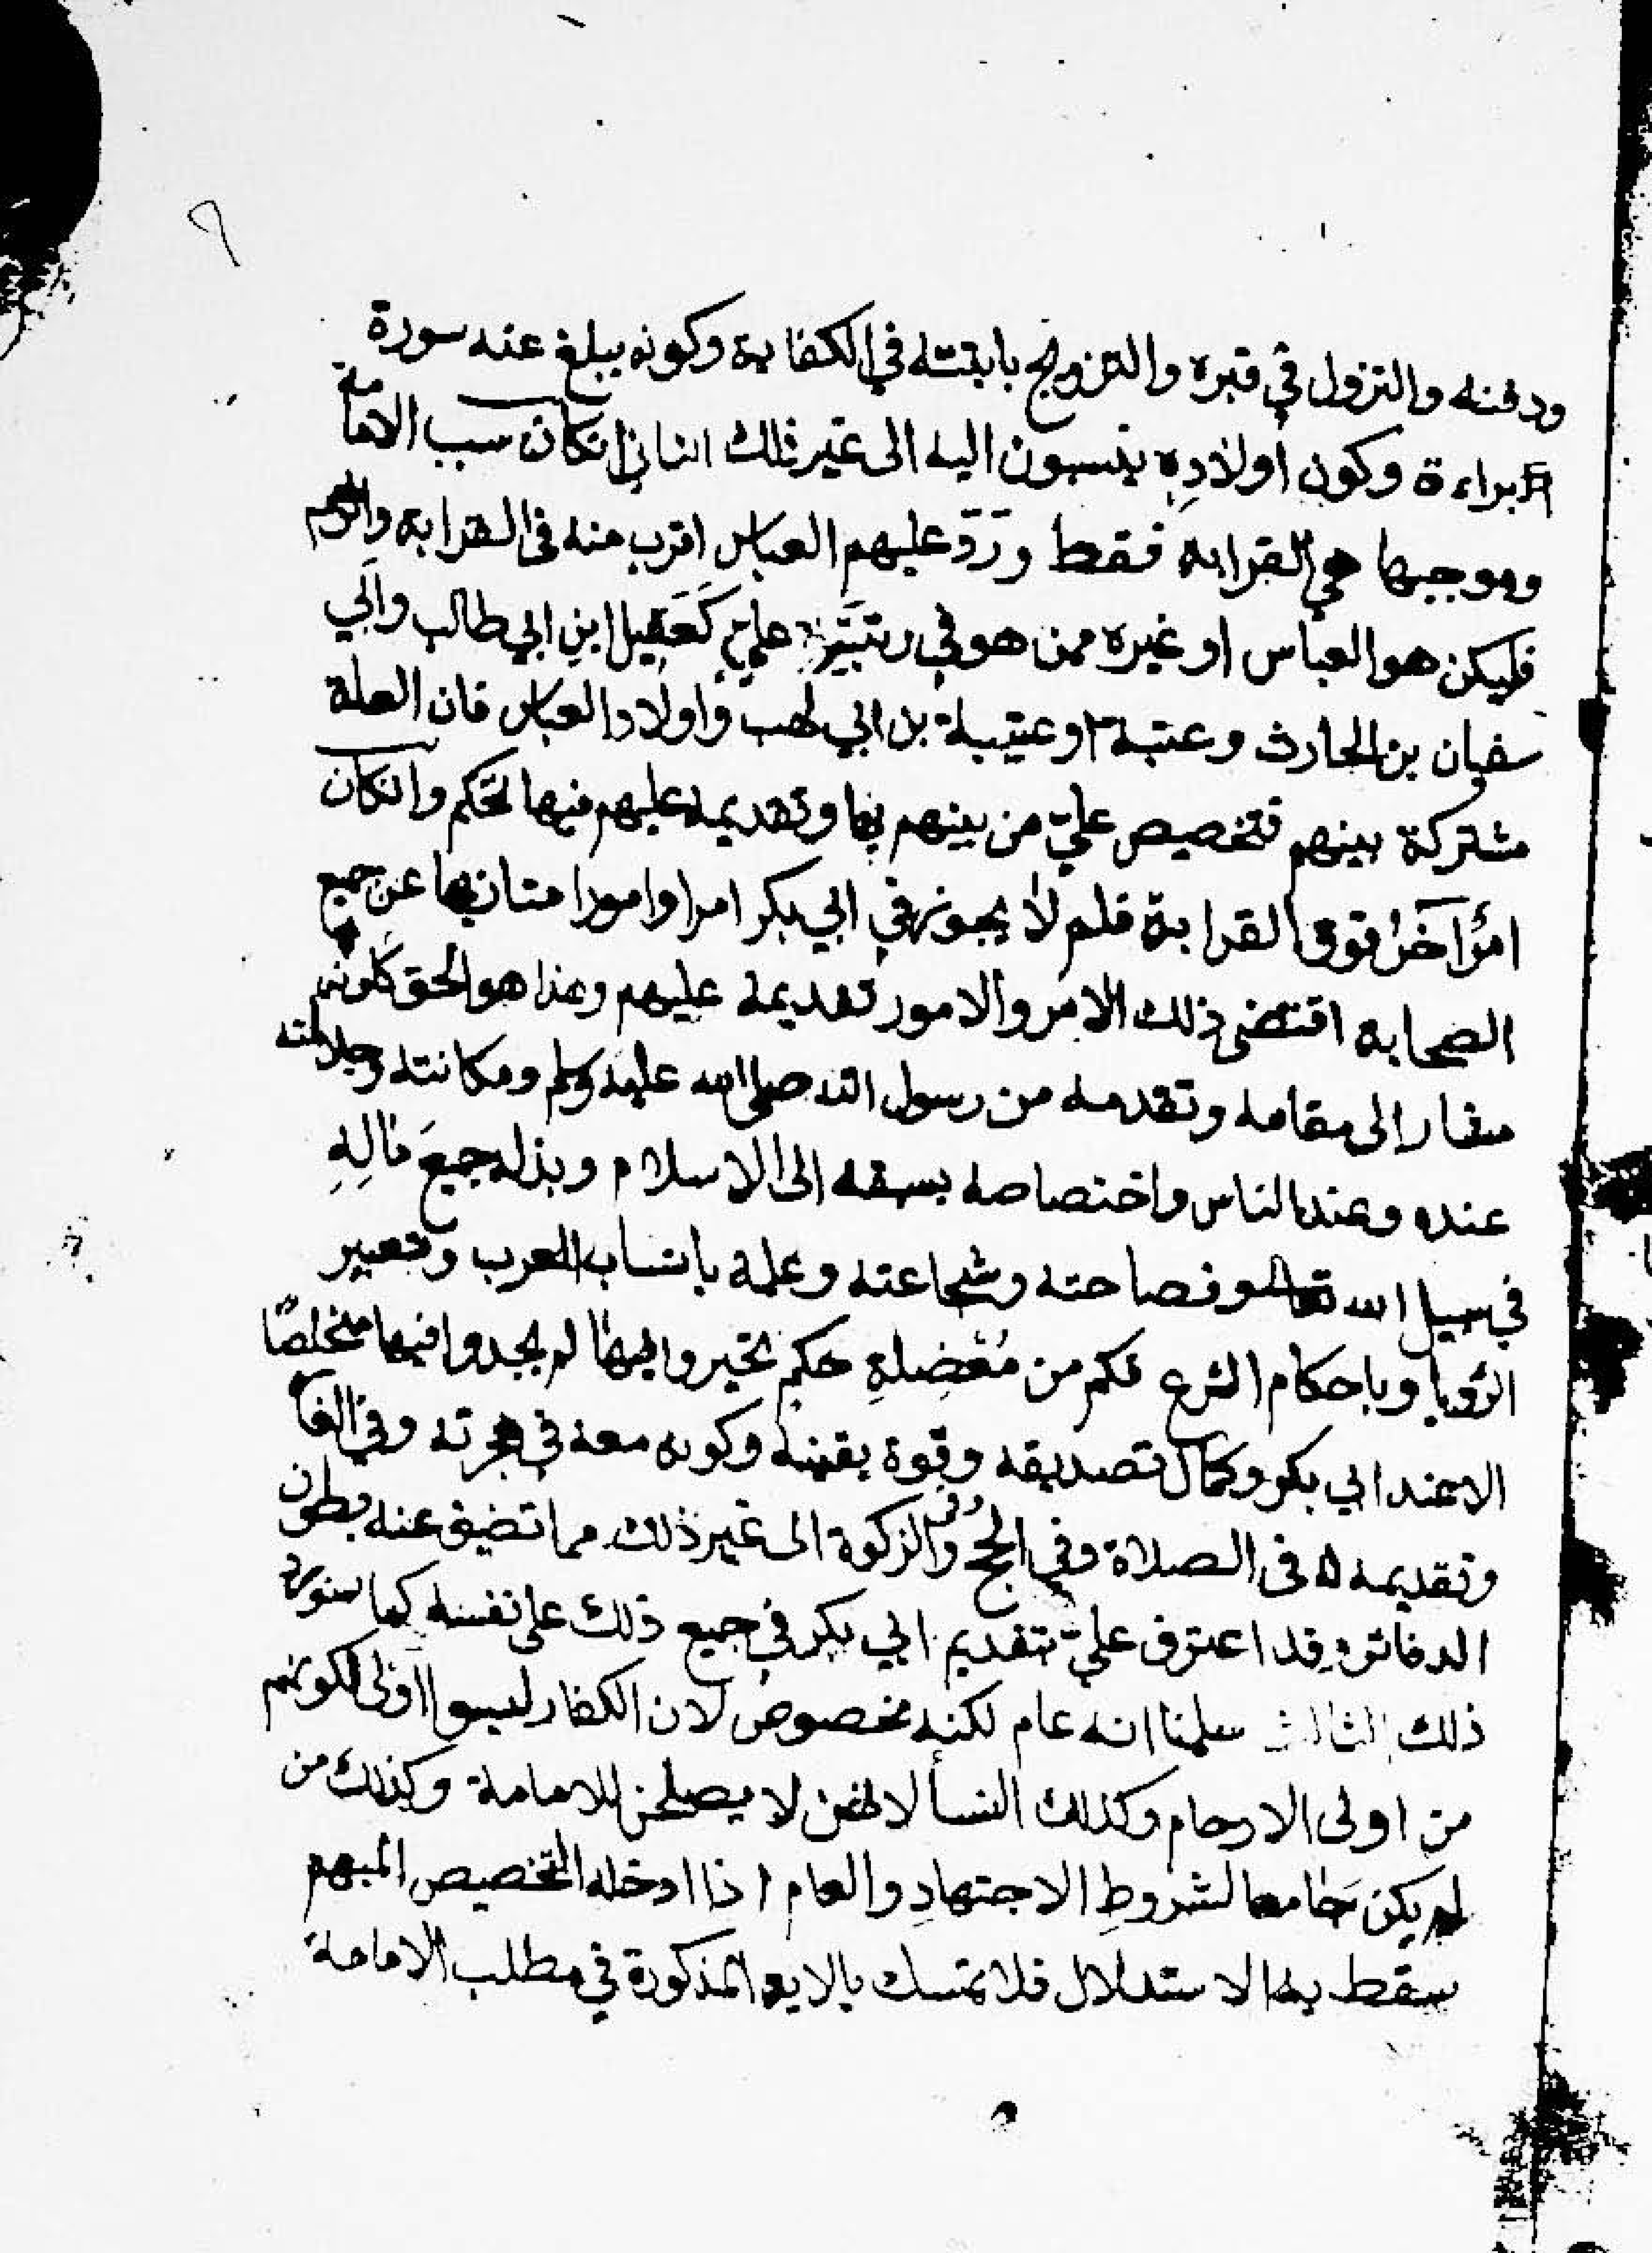 ٩
ودفنه والنزول في قبره والتزويج بابنته في الكفاية وكونه يبلغ عنه سورة
براءة وكون أولادِه ينسبون اليه الى غير ذلك الثاني ان كان سبب الامامة
وموجبها هي القرابه فقط ورَدّ عليهم العباس اقرب منه في القرابه والرحم
فليكن هو العباس او غيره ممن هو في رتبة عليّ كَعَقِيل ابنِ ابي طالب وابي
سفيان بن الحارث وعتبة او عتيبة بن ابي لهب واولاد العباس فان العلة
مشتركة بينهم فتخصيص عليّ من بينهم بها وتقديمه عليهم فيها تحكم وان كان
امرًا آخرَ فوق القرابة فلم لا يجوز في ابي بكر امرا وامورا امتاز بها عن جميع
الصحابه اقتضى ذلك الامر والامور تقديمه عليهم وهذا هو الحق ككونه
مشارا الى مقامه وتقدمه من رسول الله صلى الله عليه وسلم ومكانته وجلالته
عنده وعند الناس واختصاصه بسبقه الى الاسلام وبذله جميعَ مالِهِ
في سبيل الله تعالى وفصاحته وشجاعته وعلمه بانساب العرب وتعبير
الرؤيا وباحكام الشرع فكم من مُعْضِلةِ حكم تحيروا فيها لم يجدوا فيها مخلصًا
الا عند ابي بكر وكمال تصديقه وقوة يقينه وكونه معه في هجرته وفي الغار
وتقديمه له في الصلاة وفي الحج وفي الزكوة الى غير ذلك مما تضيق عنه بطون
الدفاتر وقد اعترف عليّ بتقديم ابي بكر في جميع ذلك على نفسه كما سنورد
ذلك الثالث سلمنا انه عام لكنه مخصوص لان الكفار ليسوا اولى لكونهم
من اولى الارحام وكذلك النسأ لانهن لا يصلحن للامامة وكذلك من
لم يكن جامعا لشروطِ الاجتهادِ والعام اذا ادخله التخصيص المبهم
سقط به الاستدلال فلا تمسك بالايه المذكورة في مطلب الامامة